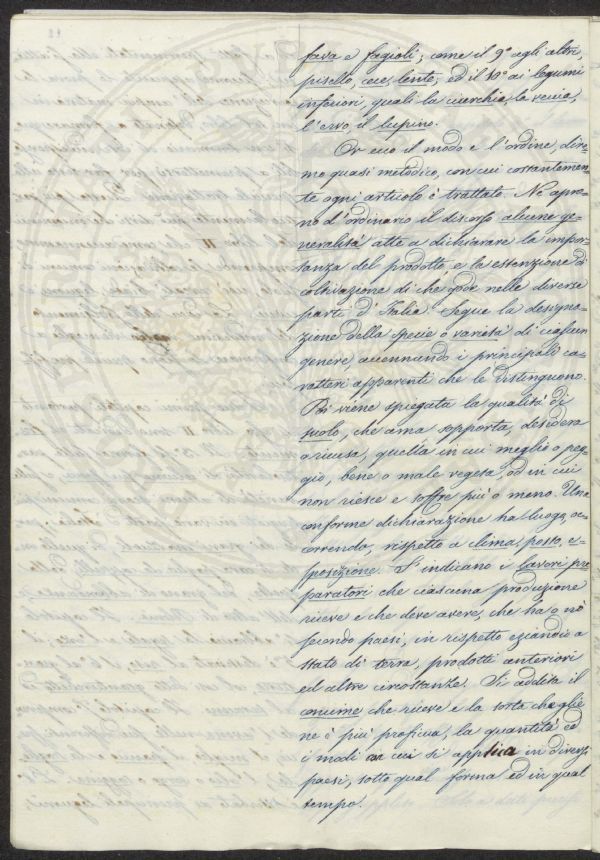 fava e fagioli; come il 9° agli altri,
pisello, cece, lente, ed il 10° ai legumi
inferiori, quali la cicerchia, la veccia,
l'ervo, il lupino.
Or ecco il modo e l'ordine, dire-
mo quasi metodico, con cui costantemen-
te ogni articolo è trattato. Ne apro-
no d'ordinario il discorso alcune ge-
neralità atte a dichiarare la impor-
tanza del prodotto e la estenzione di
coltivazione di che gode nelle diverse
parti d'Italia. Segue la designa-
zione della specie o varietà di ciascun
genere, accennando i principali ca-
ratteri apparenti che le distinguono.
Poi viene spiegata la qualità di
suolo, che ama sopporta, desidera
o ricusa, quella in cui meglio o peg-
gio, bene o male vegeta, od in cui
non riesce e soffre più o meno. Una
conforme dichiarazione ha luogo, oc-
correndo, rispetto a clima, posto, e-
sposizione. S'indicano i lavori pre-
paratori che ciascuna produzione
riceve e che deve avere, che ha o nò
secondo paesi, in rispetto eziandio a
stato di terra, prodotti anteriori
ed altre circostanze. Si addita il
concime che riceve e la sorta che gli
ne è più proficua, la quantità ed
i modi in cui si applica in diversi
paesi, sotto qual forma ed in qual
tempo.